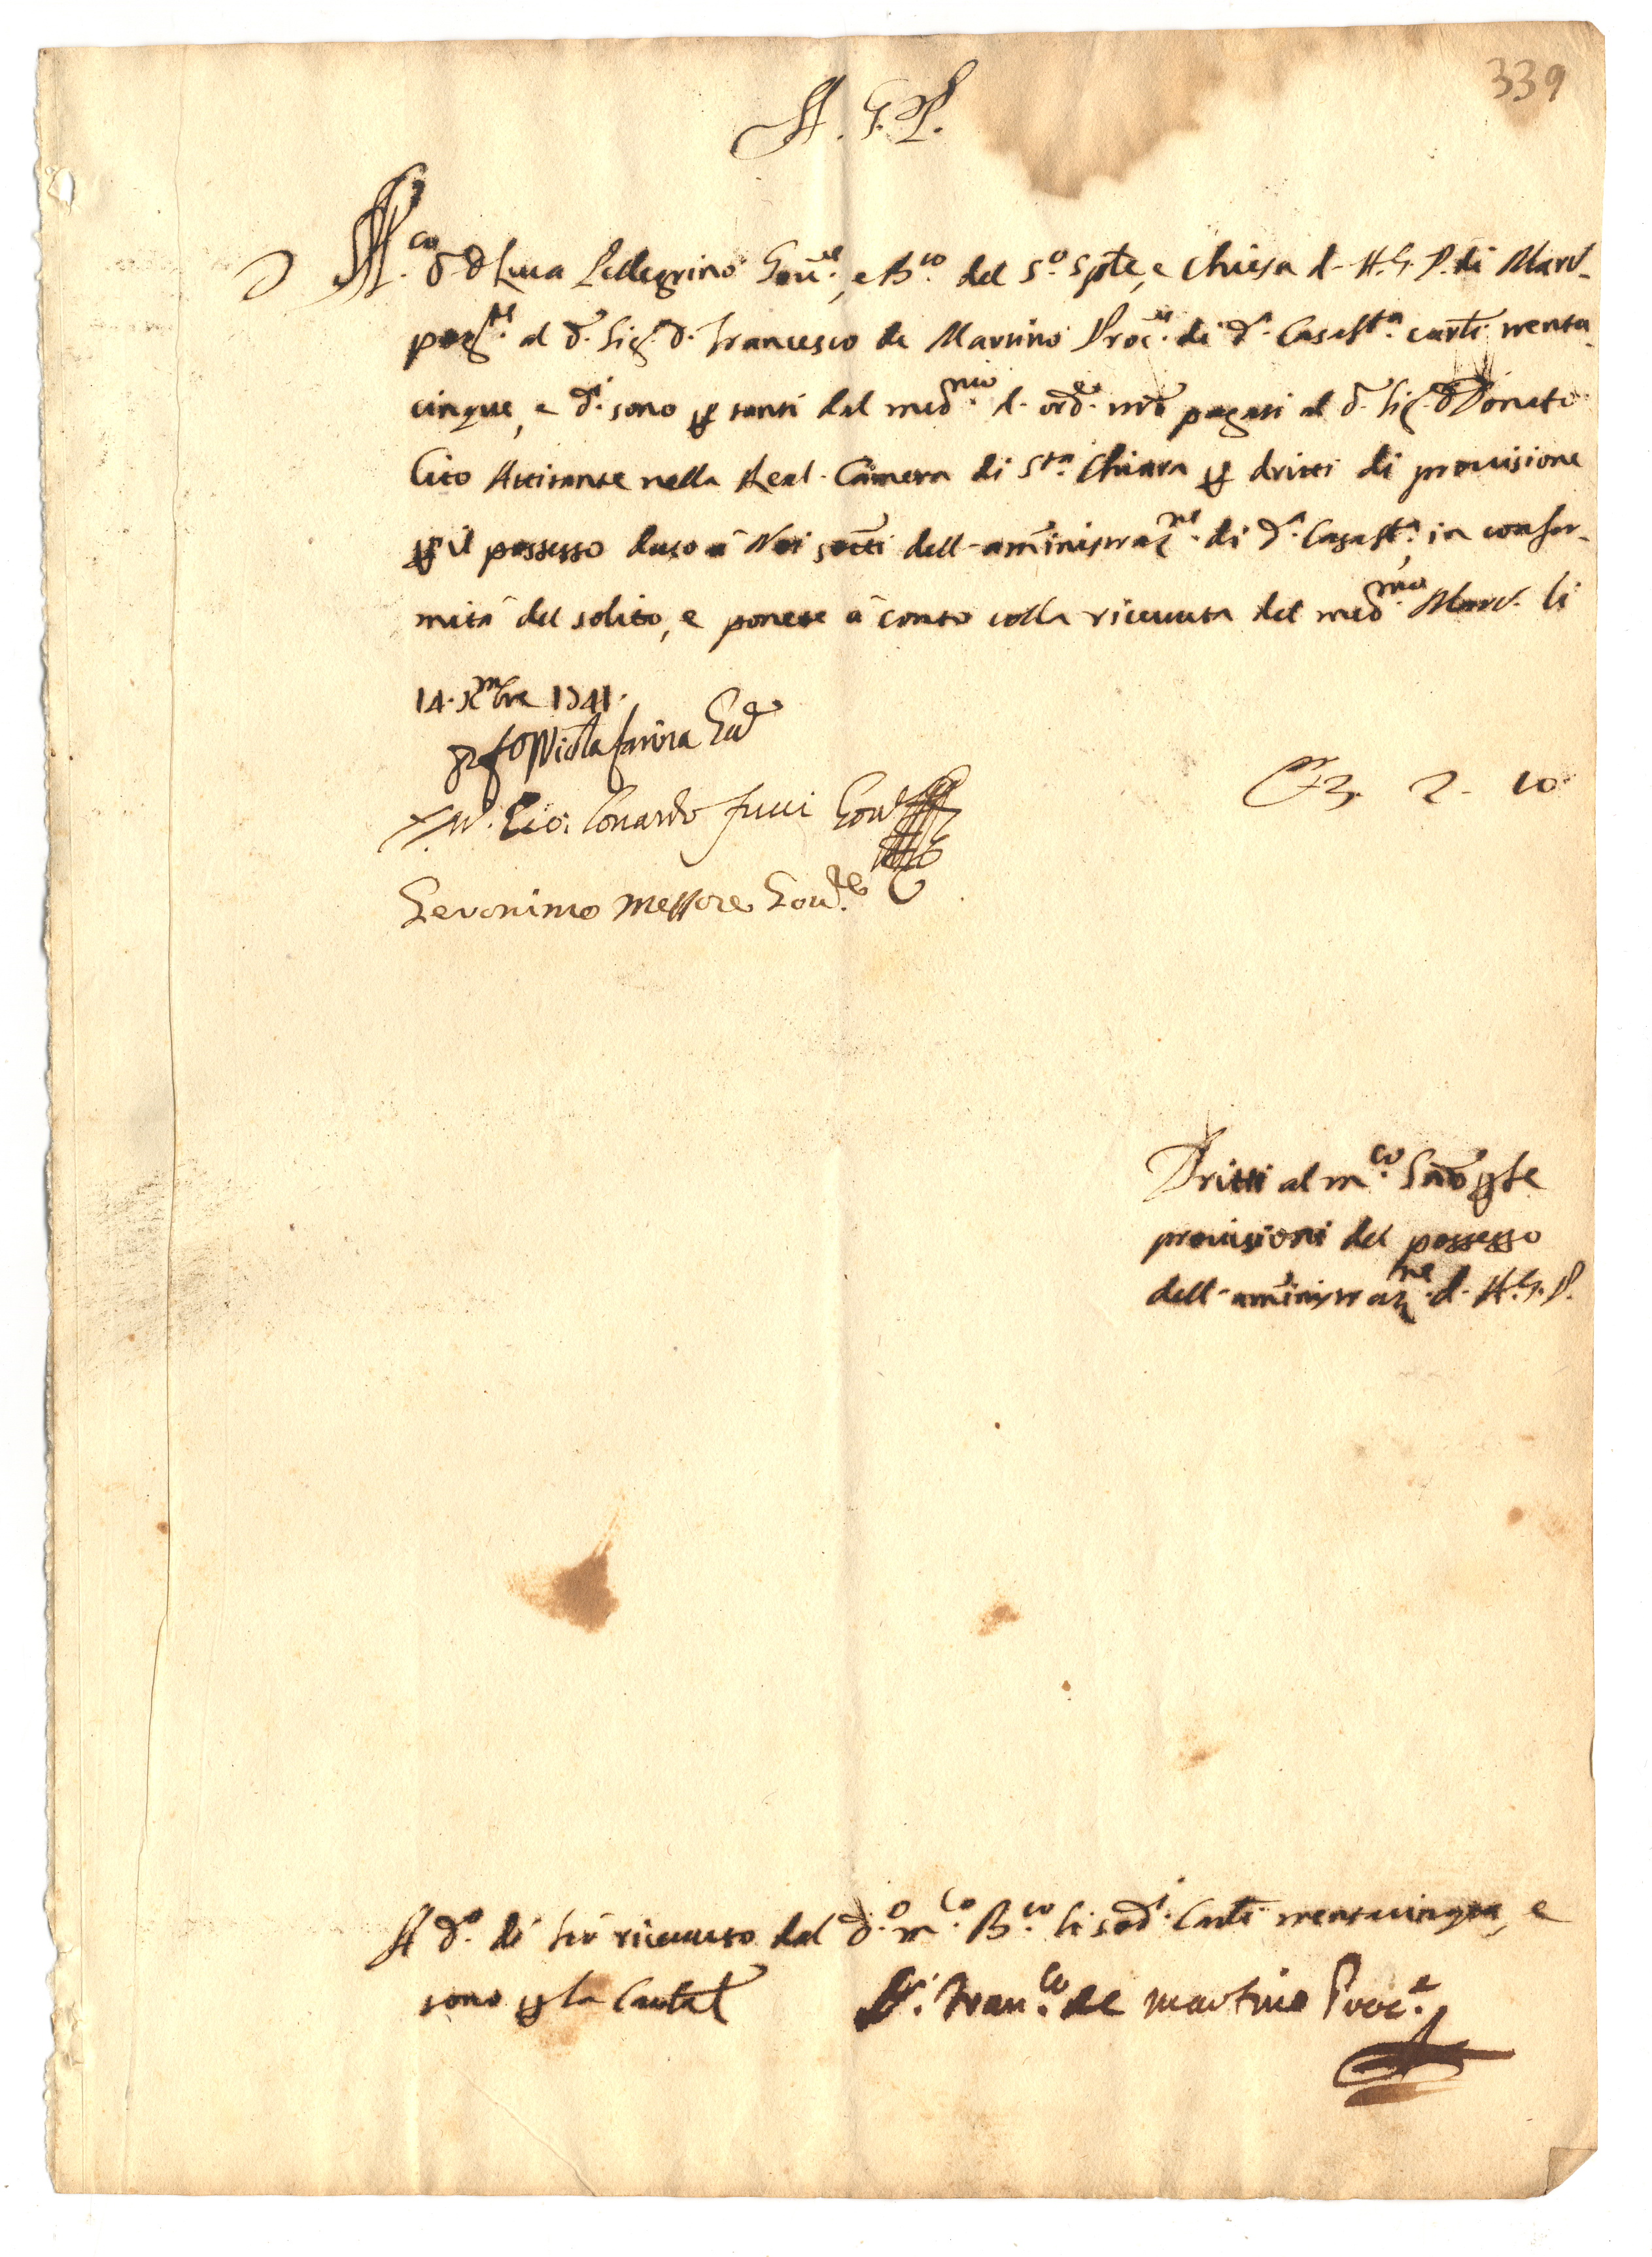 339
A. G. P.
M.co D. D. Luca Pellegrino Gov.re, e B.co del S.o Sp̃le, e Chiesa d. A. G. P. di Marc.
pag.te al D. Sig. D. Francesco de Martino Proc.re di d.a Casa St.a carl̃i trenta
cinque, e d.i sono p tanti dal med.mo d. ord.e nr̃o pagati al D. Sig. D. Donato
Cito Attitante nella Real. Camera di S.ta Chiara p dritti di provisione
p il possesso dato à Noi sotti dell'am̃inistraz.ne di d.a Casa St.a, in confor-
mità del solito, e ponete à conto colla ricevuta del med.mo Marc. li
14. Xmbre 1741.
Nicola farina Gov.
Gio: Lonardo fucci Gov.
Geronimo Messore Gov.re
3. 2. 10
Dritti al m.co p le
provisioni del possesso
dell'am̃inistraz.ne d. A. G. P.
A d.o dì hò ricevuto dal d.o m.co B.co li sud.i Carl̃i trentacinque, e
sono p la Caut̃al
D. Fran.co de martino Proc.e